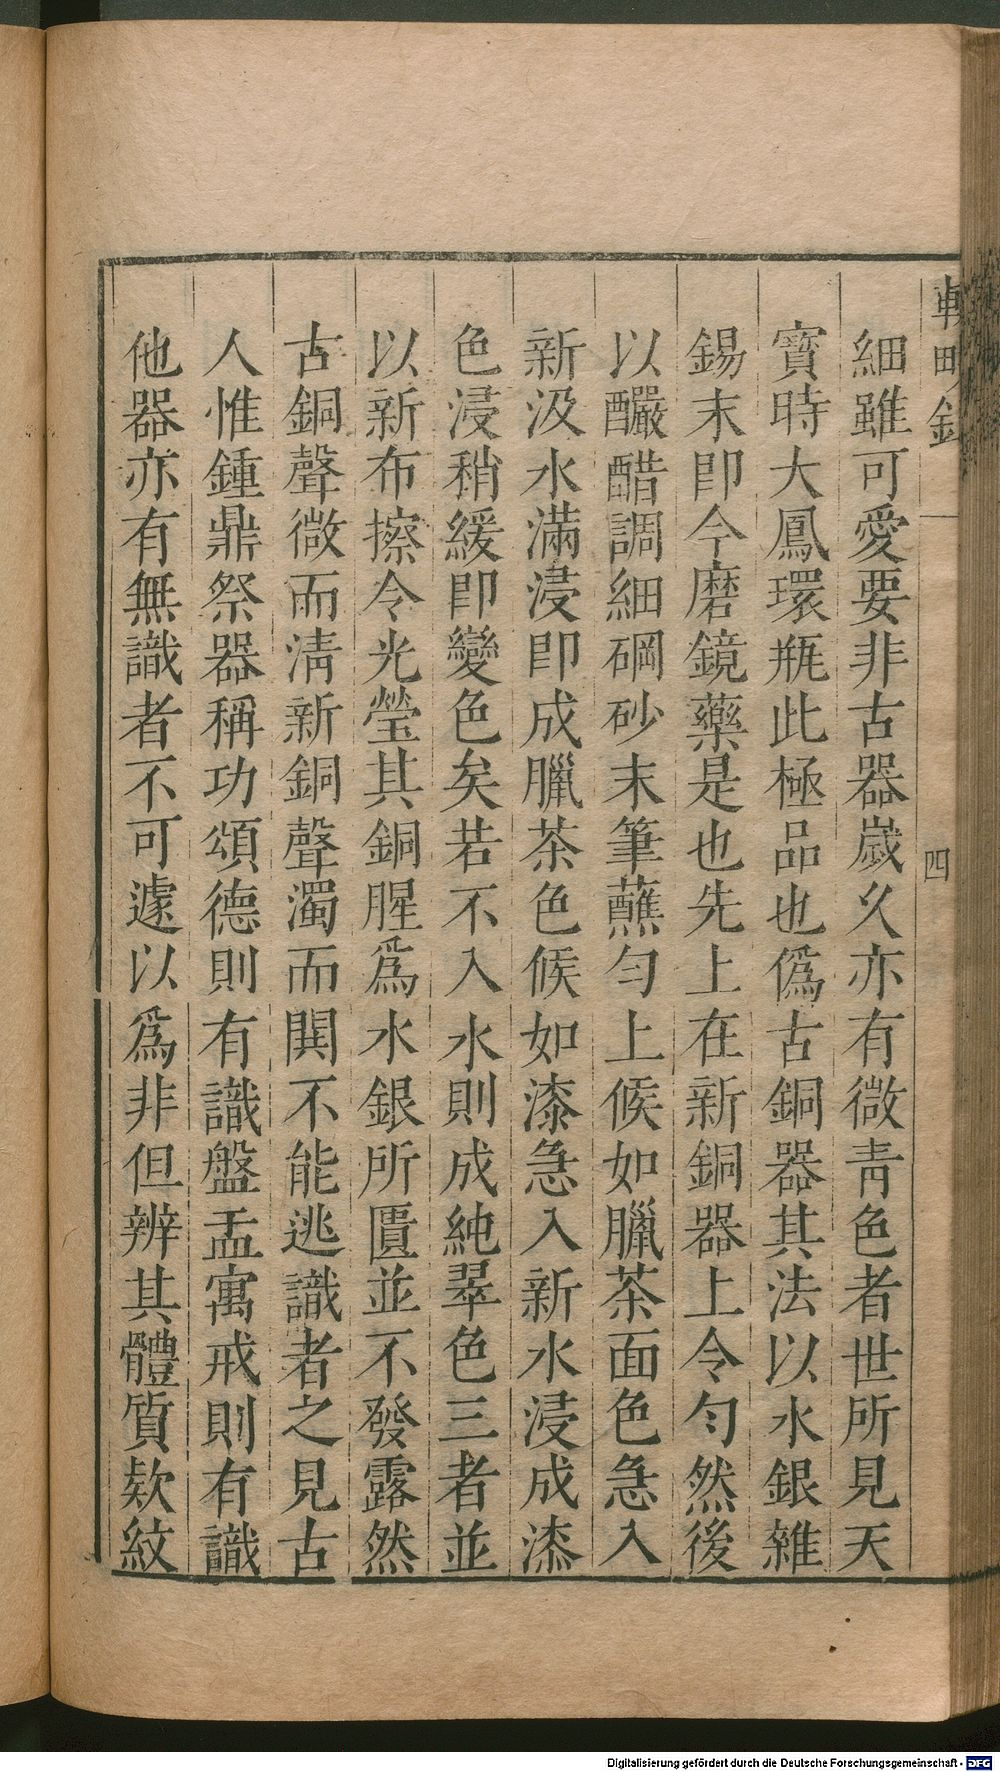 細雖可愛要非古器嵗久亦有微靑色者世所見天
寳時大鳳環瓶此極品也僞古銅器其法以水銀雜
錫末卽今磨鏡藥是也先上在新銅器上令勻然後
以釅醋調細硇砂末筆蘸勻上候如臘茶面色急入
新汲水滿浸卽成臘茶色候如漆急入新水浸成漆
色浸稍緩卽變色矣若不入水則成純翠色三者並
以新布擦令光瑩其銅腥爲水銀所匱並不發露然
古銅聲微而淸新銅聲濁而閧不能逃識者之見古
人惟鍾鼎祭器稱功頌德則有識盤盂寓戒則有識
他器亦有無識者不可遽以爲非但辨其體質欵紋
四
Digitalisierung gefördert durch die Deutsche Forschungsgemeinschaft - DFG